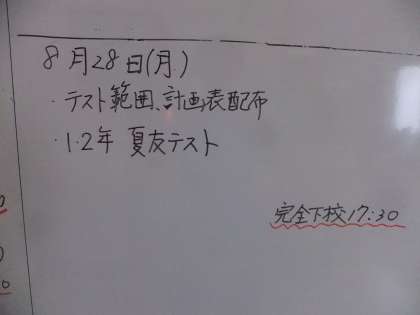 8月28日(月)
・テスト範囲、計画表配布
・1.2年 夏友テスト
完全下校17:30